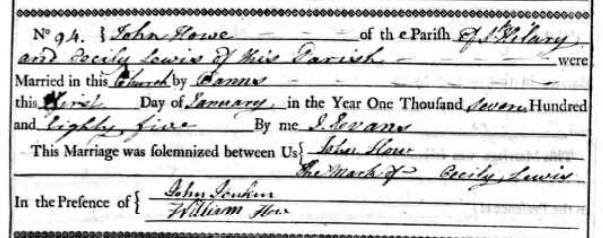 No 94. { John Howe - - - of the Parish of St Hilary
and Cecily Lewis of this Parish - - - - were
Married in this Church by Banns - - - -
this First Day of January in the Year One Thousand seven Hundred
and Eighty five By me J. Evans
This Marriage was solemnized between Us { John How
The Mark of Cecily Lewis
In the Presence of { John Jenkin
William How